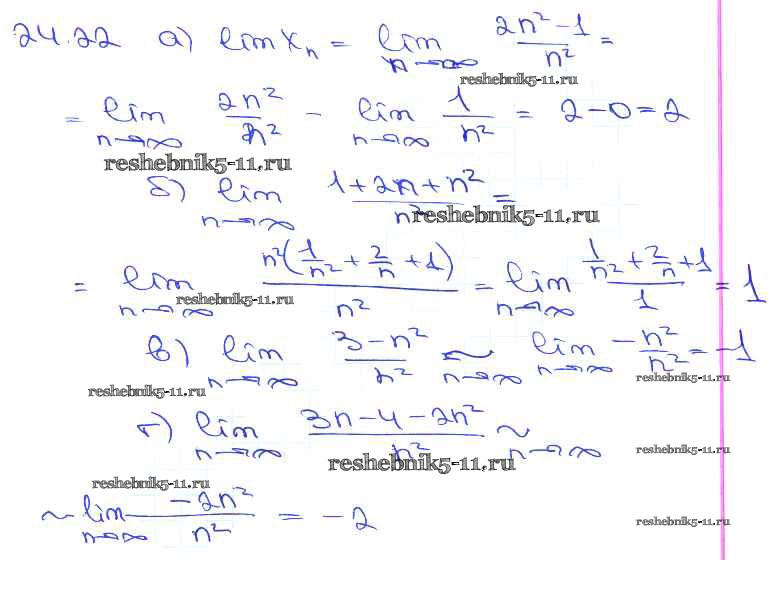 24.22 а) lim xₙ = lim n→∞ (2n²-1)/n² =
reshebnik5-11.ru
= lim n→∞ 2n²/n² - lim n→∞ 1/n² = 2-0=2
reshebnik5-11.ru
б) lim n→∞ (1+2n+n²)/n² =
reshebnik5-11.ru
= lim n→∞ n²(1/n² + 2/n + 1)/n² = lim n→∞ (1/n² + 2/n + 1)/1 = 1
reshebnik5-11.ru
в) lim n→∞ (3-n²)/n² ~ n→∞ lim n→∞ -n²/n² = -1
reshebnik5-11.ru
reshebnik5-11.ru
г) lim n→∞ (3n-4-2n²)/n² ~ n→∞
reshebnik5-11.ru
reshebnik5-11.ru
reshebnik5-11.ru
~ lim n→∞ -2n²/n² = -2
reshebnik5-11.ru